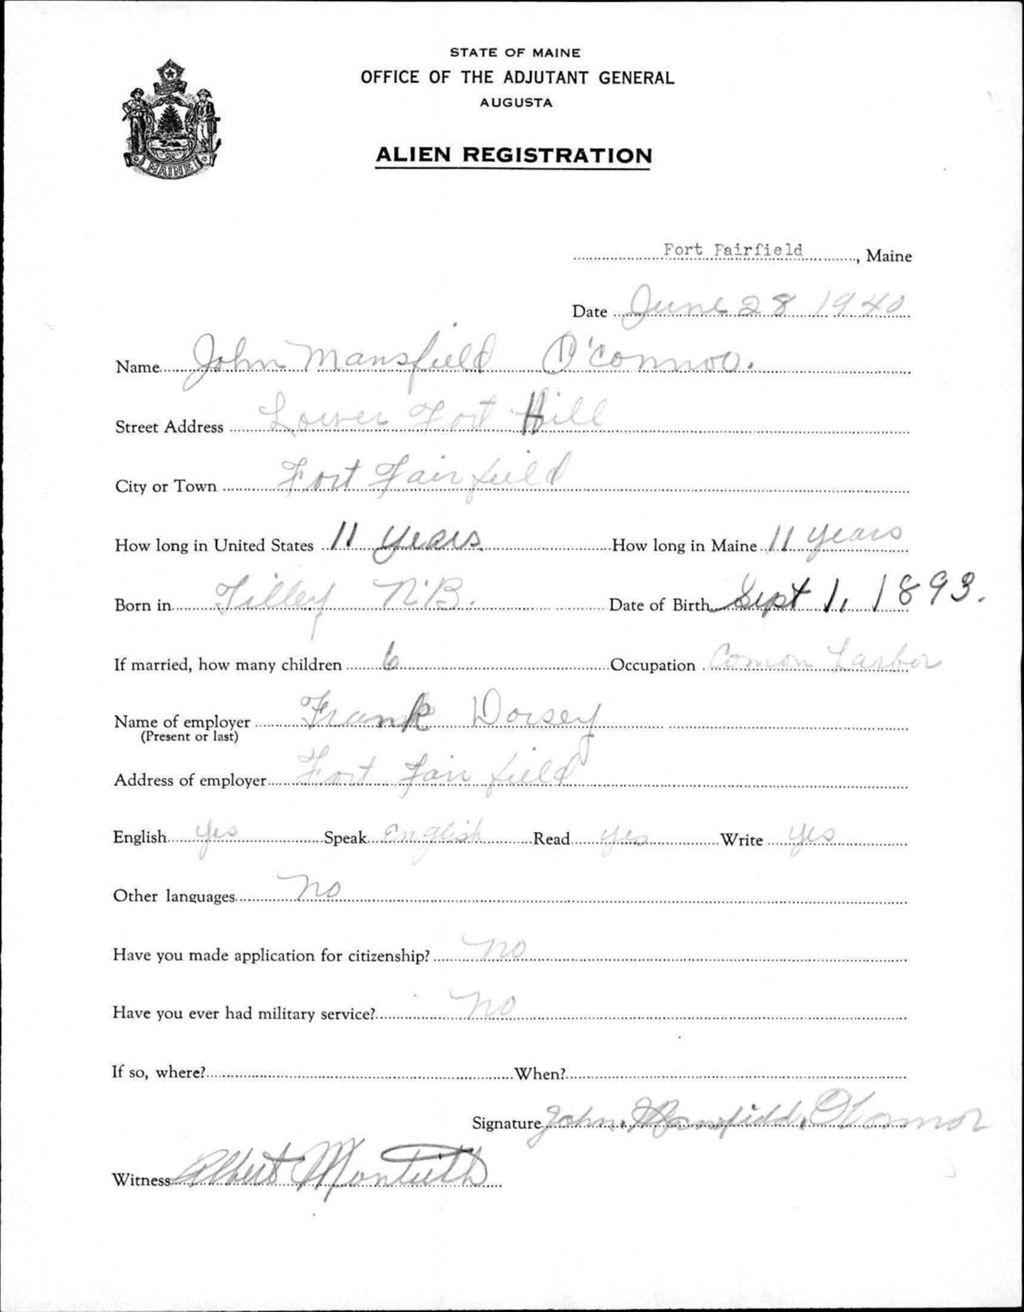 STATE OF MAINE
OFFICE OF THE ADJUTANT GENERAL
AUGUSTA
ALIEN REGISTRATION
MAINE
Fort Fairfield, Maine
Date June 28 1940
Name John Mansfield O'Connor.
Street Address Lower Fort Hill
City or Town Fort Fairfield
How long in United States 11 years How long in Maine 11 years
Born in Tilley N.B. Date of Birth Sept 1, 1893.
If married, how many children 6 Occupation Comon Larbor
Name of employer Frank Dorsey
(Present or last)
Address of employer Fort Fairfield
English yes Speak English Read yes Write yes
Other languages no
Have you made application for citizenship? no
Have you ever had military service? no
If so, where? When?
Signature John Mansfield O'Connor
Witness Albert Monteith